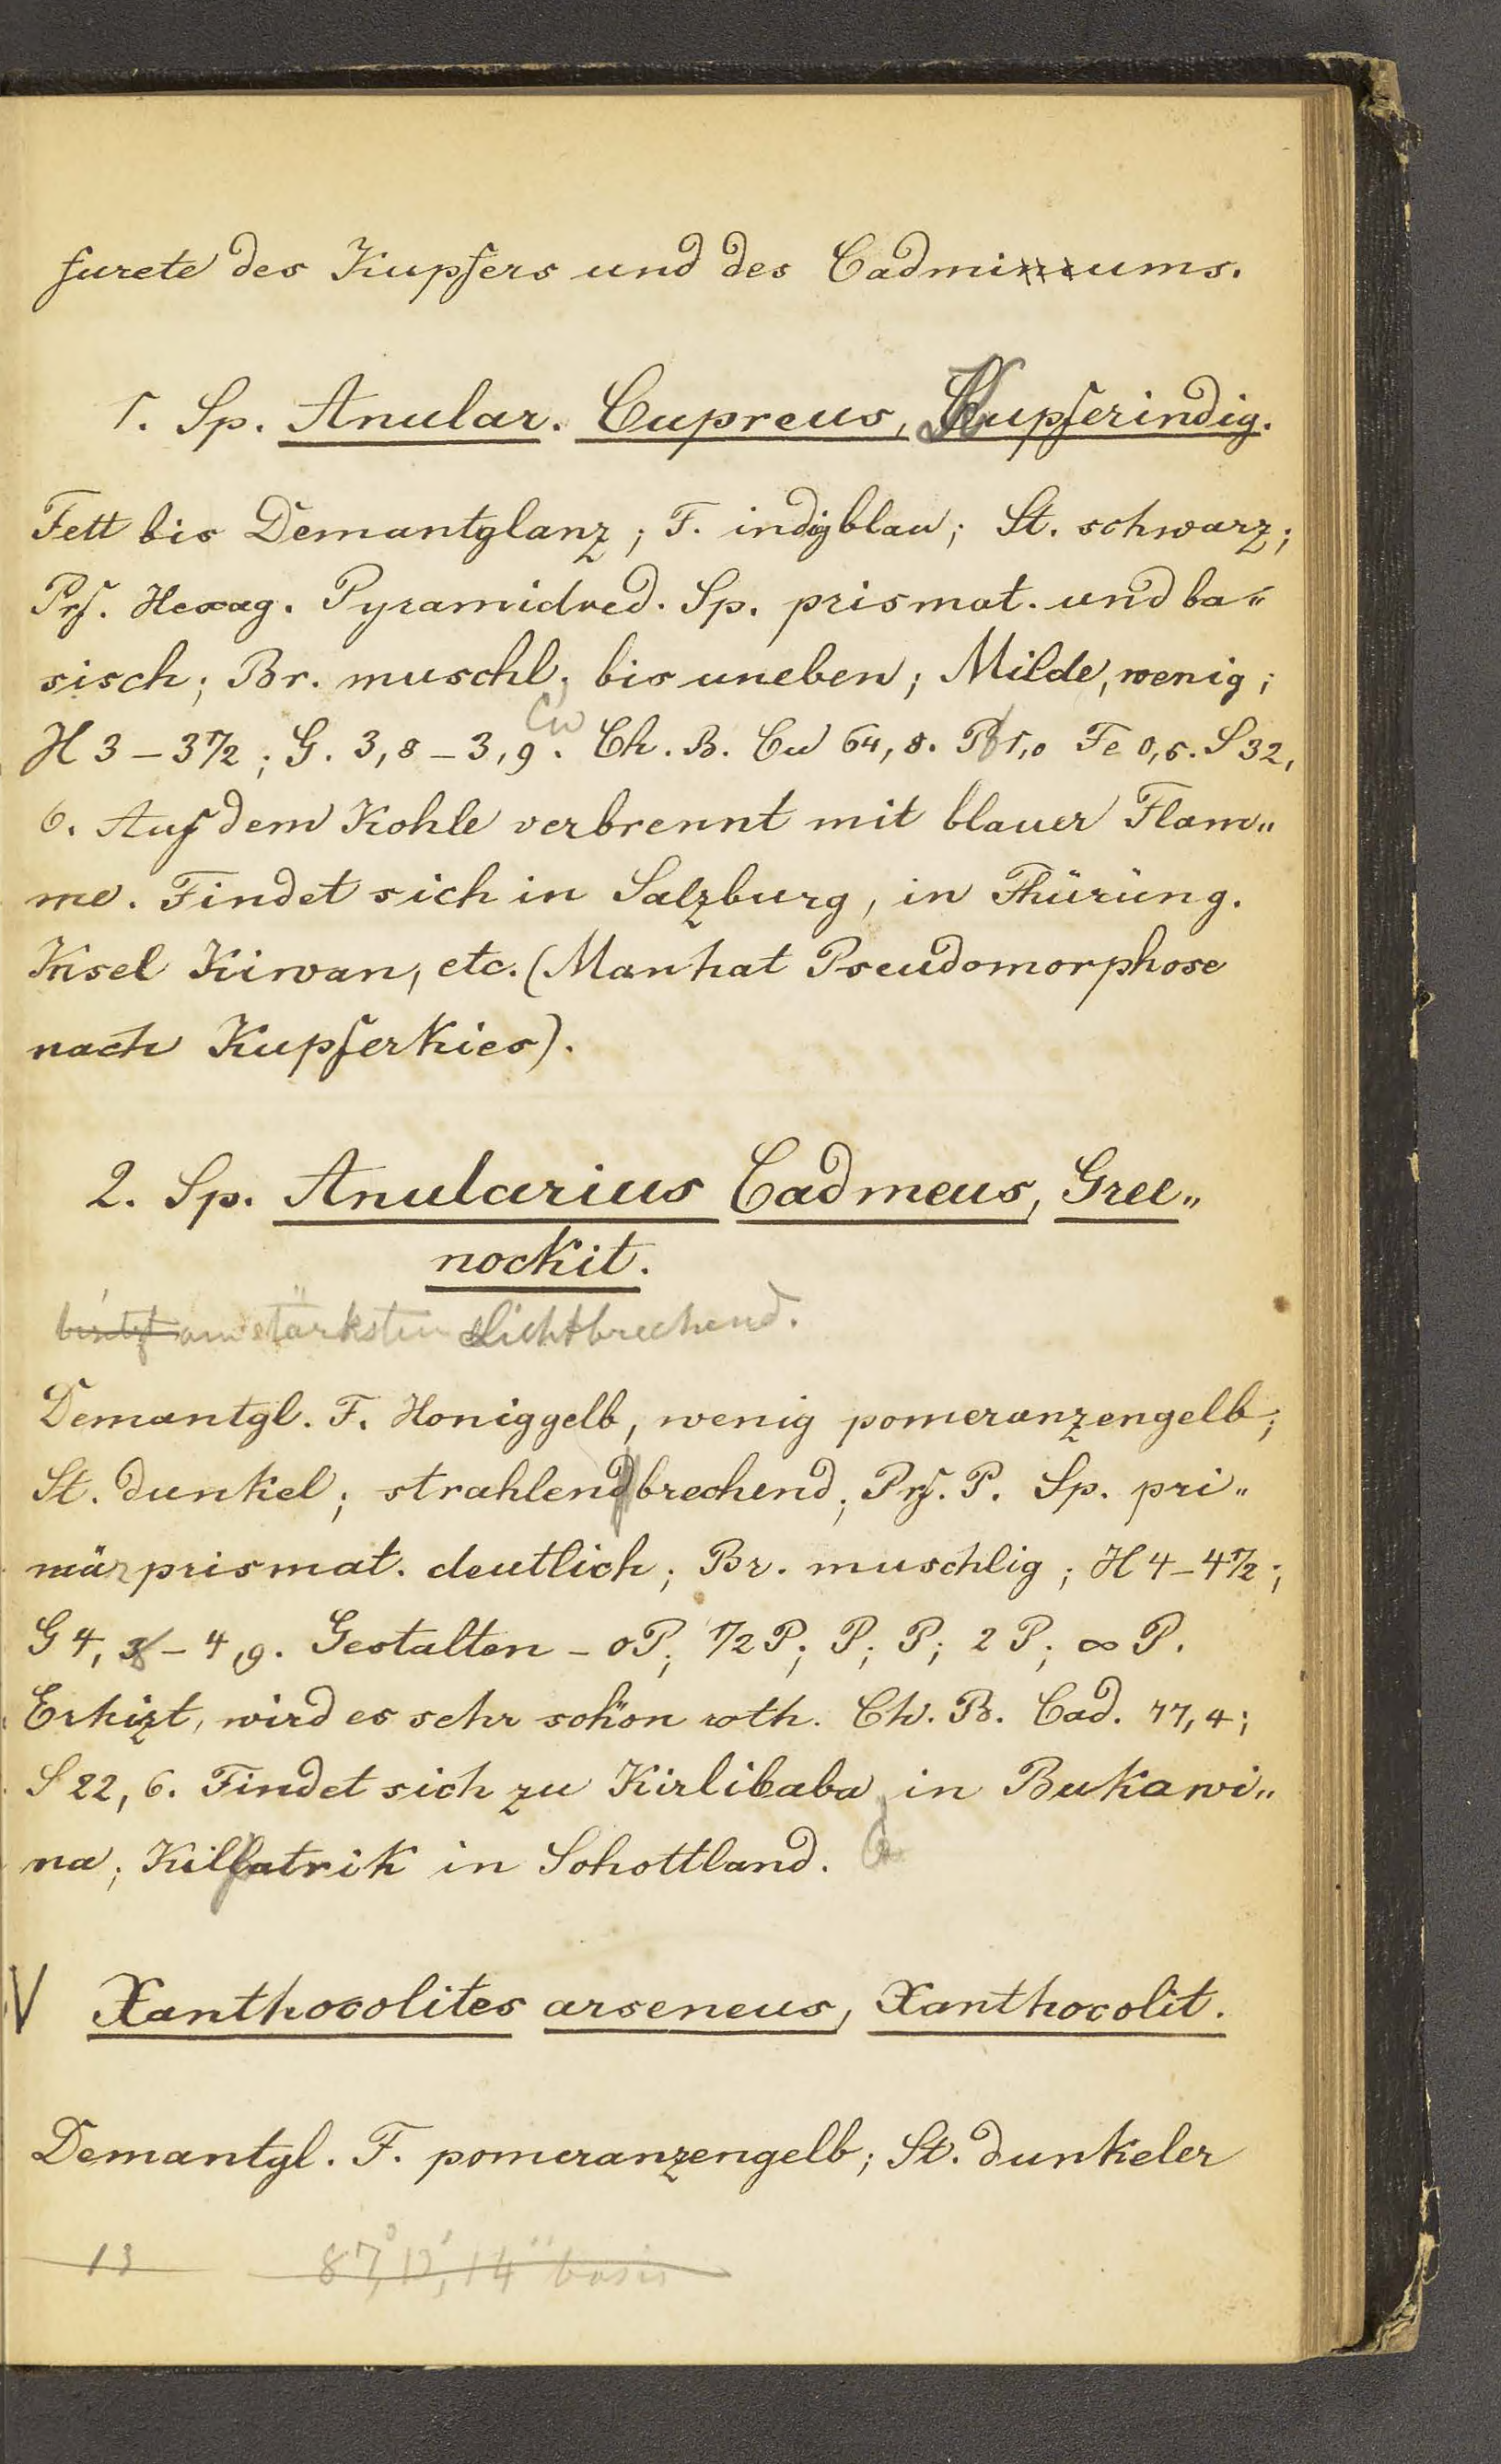 furete des Kupfers und des Cadmiums.
1. Sp. Anular. Cupreus, Kupferindig.
Fett bis Demantglanz; F. indigblau; St. schwarz;
Prf. Hexag. Pyramidred. Sp. prismat. und ba„
sisch; Br. muschl. bis uneben; Milde, wenig;
Cu
H 3–3 1/2; G. 3,8–3,9. Ch. B. Cu 64,8. Pb 1,0 Fe 0,5. S 32,
6. Auf dem Kohle verbrennt mit blauer Flam„
me. Findet sich in Salzburg, in Thürüng.
Insel Kiwan, etc. (Man hat Pseudomorphose
nach Kupferkies).
2. Sp. Anularius Cadmeus, Gree„
nockit.
am stärksten Lichtbrechend.
Demantgl. F. Honiggelb, wenig pomeranzengelb;
St. dunkel; strahlendbrechend; Prf. P. Sp. pri„
mär prismat. deutlich; Br. muschlig; H 4–4 1/2;
G 4,8–4,9. Gestalten – oP; 1/2 P; P; P; 2 P; ∞ P.
Erhizt, wird es sehr schön roth. Ch. B. Cad. 77,4;
S 22,6. Findet sich zu Kirlibaba in Bukawi„
na; Kilpatrik in Schottland.
V Xanthocolites arseneus, Xanthocolit.
Demantgl. F. pomeranzengelb; St. dunkeler
13 87°,12',14" basis